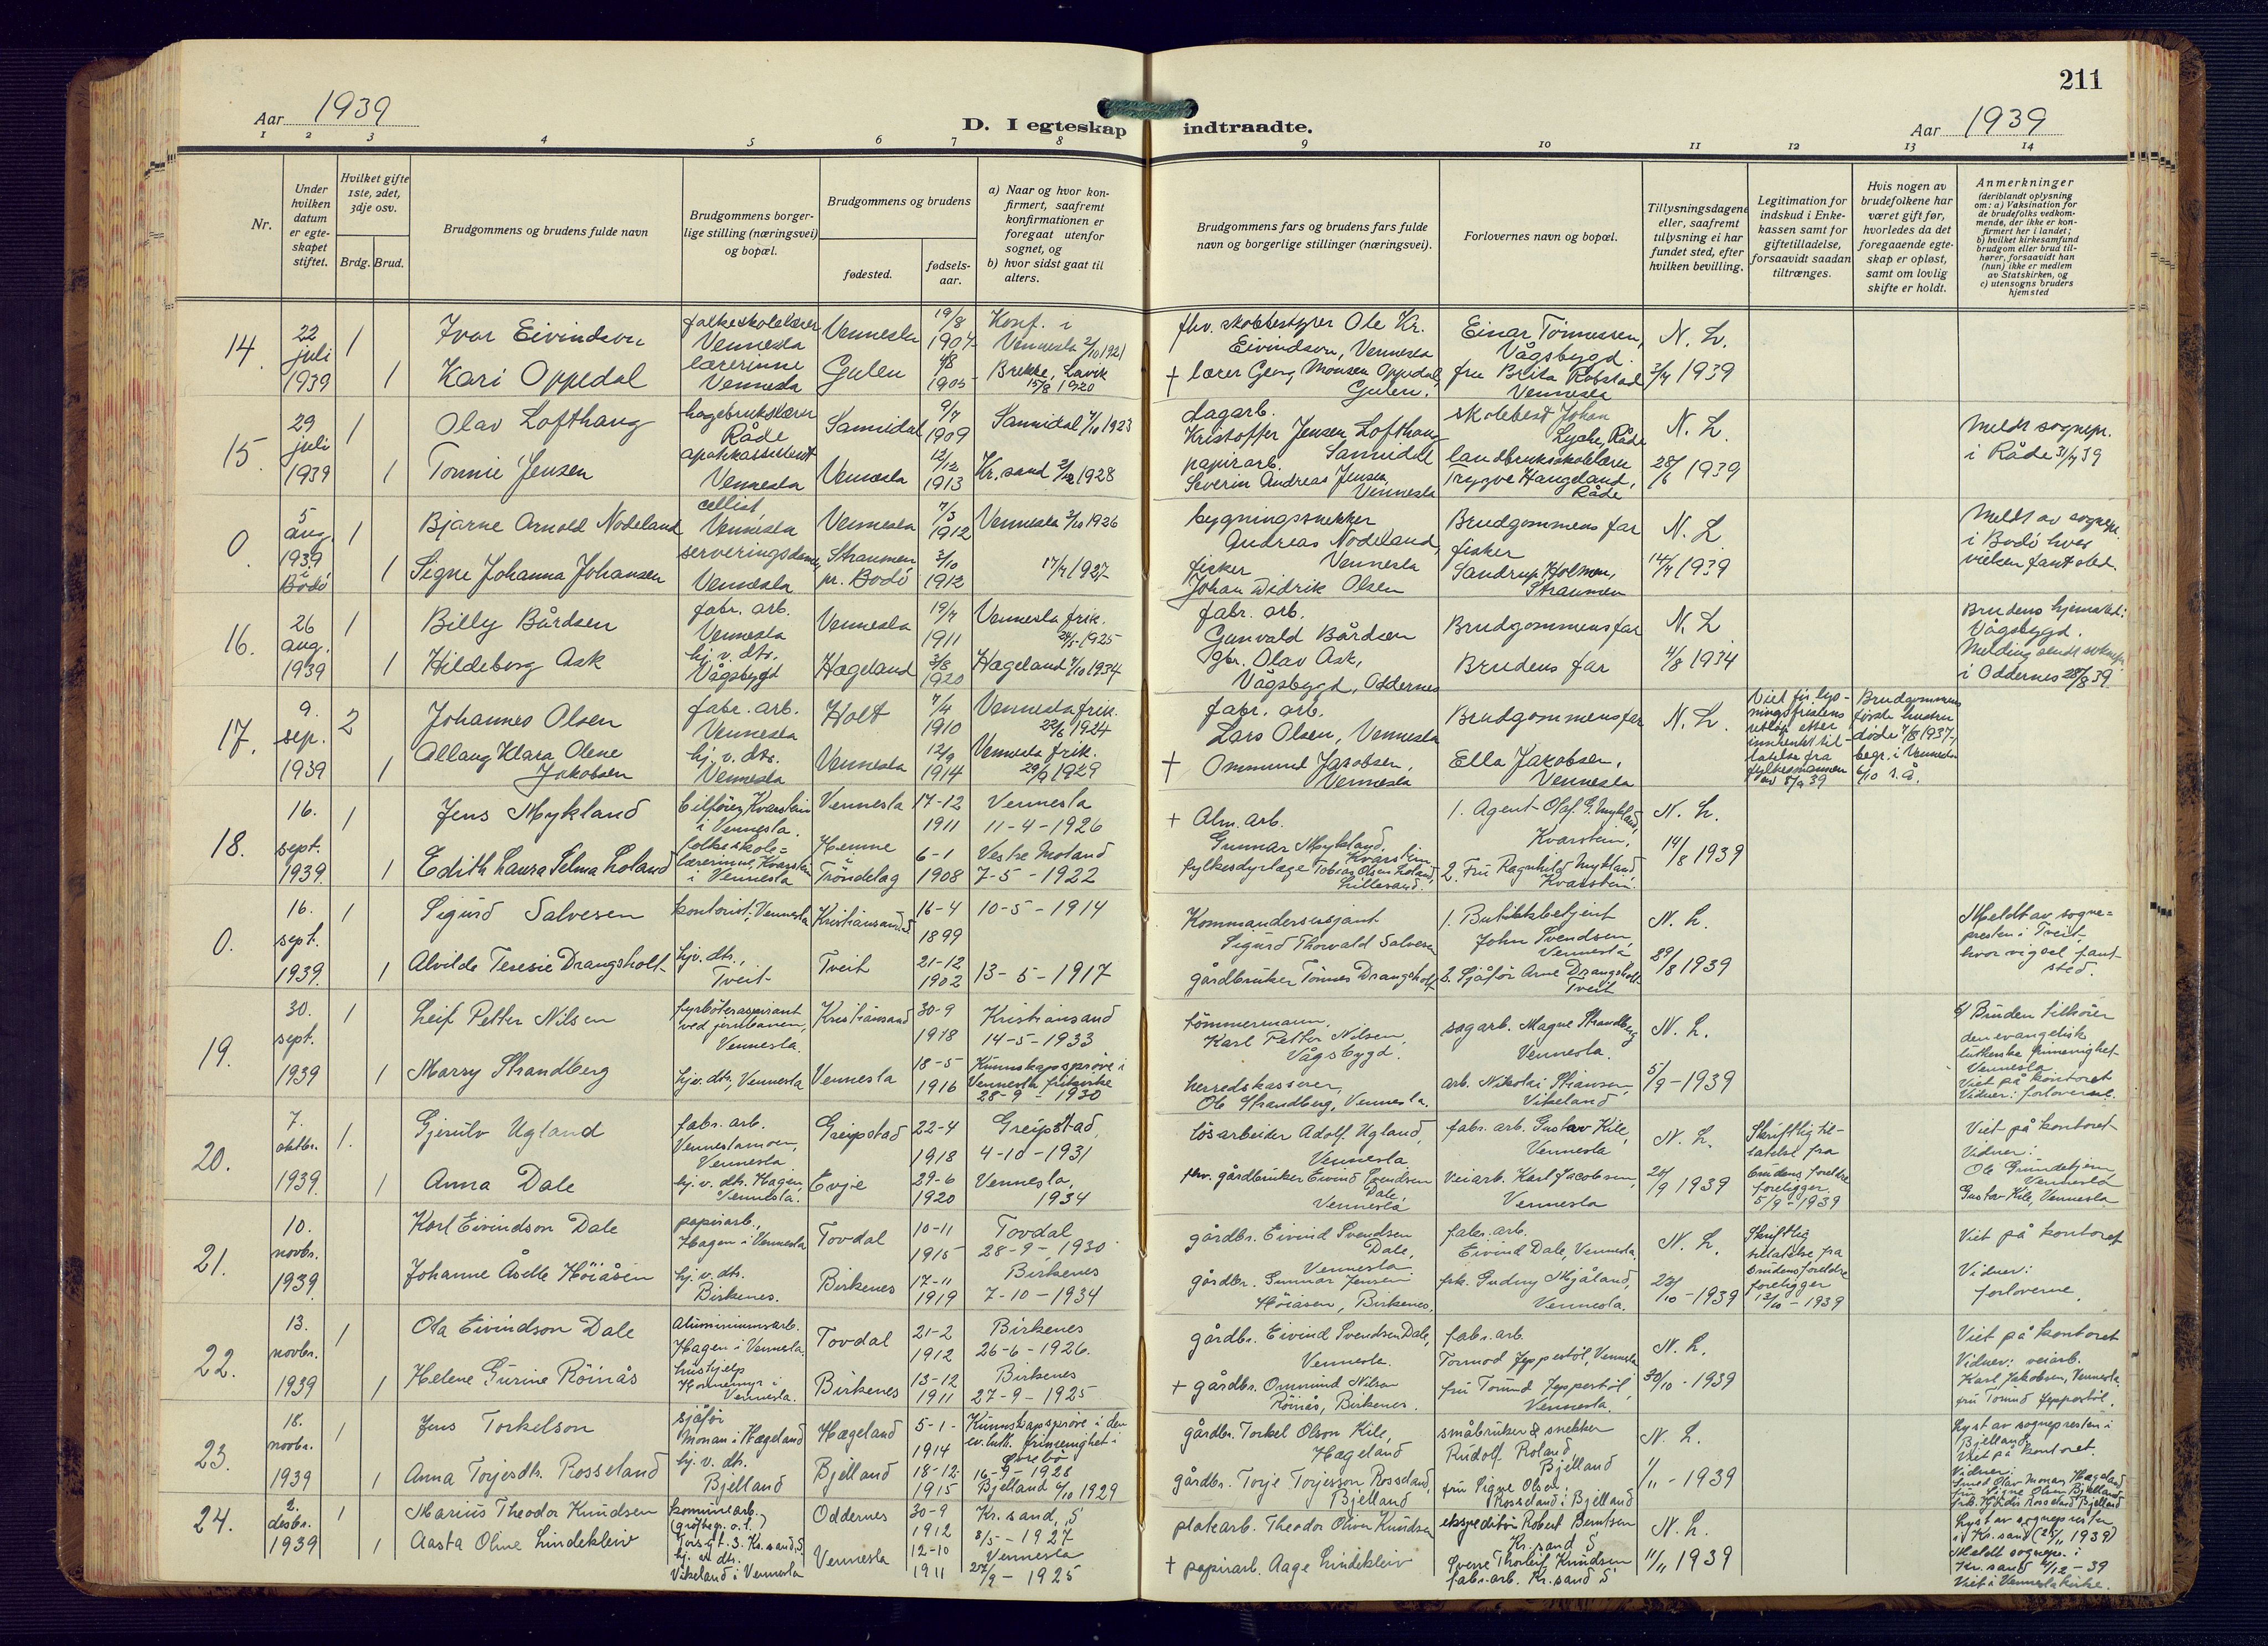 211
Aar 1939
D. I egteskap indtraadte.
Aar 1939
1 2 3 4 5 6 7 8 9 10 11 12 13 14
Nr.
Under hvilken datum er egteskapet stiftet.
Hvilket gifte 1ste, 2det, 3dje osv.
Brdg. Brud.
Brudgommens og brudens fulde navn
Brudgommens borgerlige stilling (næringsvei) og bopæl.
Brudgommens og brudens
fødested.
fødselsaar.
a) Naar og hvor konfirmert, saafremt konfirmationen er foregaat utenfor sognet, og
b) hvor sidst gaat til alters.
Brudgommens fars og brudens fars fulde navn og borgerlige stillinger (næringsvei).
Forlovernes navn og bopæl.
Tillysningsdagene eller, saafremt tillysning ei har fundet sted, efter hvilken bevilling.
Legitimation for indskud i Enkekassen samt for giftetilladelse, forsaavidt saadan tiltrænges.
Hvis nogen av brudefolkene har været gift før, hvorledes da det foregaaende egteskap er opløst, samt om lovlig skifte er holdt.
Anmerkninger
(deriblandt oplysning om: a) Vaksination for de brudefolks vedkommende, der ikke er konfirmert her i landet;
b) hvilket kirkesamfund brudgom eller brud tilhører, forsaavidt han (hun) ikke er medlem av Statskirken, og
c) utensogns bruders hjemsted
14. 22 juli 1939
1 Ivar Eivindson folkeskolelærer Vennesla Vennesla 19/8 1904 Konf. i Vennesla 2/10 1921 fhv. skolebestyrer Ole Kr. Eivindson, Vennesla Einar Tønnessen, Vågsbygd. N. L.
1 Kari Oppedal lærerinne Vennesla Gulen 4/8 1905 Brekke, Lavik 15/8 1920 + lærer Georg Monsen Oppedal, Gulen. fru Brita Robstad Vennesla 3/7 1939
15. 29 juli 1939
1 Olav Lofthaug hagebrukslærer Råde Sannidal 9/7 1909 Sannidal 7/10 1923 dagarb. Kristoffer Jensen Lofthaug Sannidal skolebest Johan Lyche, Råde N. L. Meldt sognepr. i Råde 31/7 39
1 Tonnie Jensen apotekassistent Vennesla Vennesla 12/12 1913 Kr. sand 2/12 1928 papirarb. Severin Andreas Jensen, Vennesla landbruksskolelærer Trygve Haugeland, Råde 28/6 1939
0. 5 aug 1939 i Bodö
1 Bjarne Arnold Nodeland cellist, Vennesla Vennesla 7/3 1912 Vennesla 3/10 1926 bygningssnekker Andreas Nodeland, Vennesla Brudgommens far N. L. Meldt av sognepr. i Bodö hvor vielsen fant sted.
1 Signe Johanna Johansen serveringsdame, Vennesla Straumen pr. Bodö 3/10 1912 17/7 1927 fisker Johan Didrik Olsen fisker Sandrup Holmen, Straumen 14/7 1939
16. 26 aug. 1939
1 Billy Bårdsen fabr. arb. Vennesla Vennesla 19/7 1911 Vennesla frik. 24/5 1925 fabr. arb. Gunvald Bårdsen Brudgommens far N. L. Brudens hjemsted: Vågsbygd.
1 Hildeborg Ask hj. v. dts. Vågsbygd Hægeland 3/8 1920 Hægeland 7/10 1934 gbr. Olav Ask, Vågsbygd, Oddernes Brudens far 4/8 1934 Melding sendt sognepr. i Oddernes 28/8 39.
17. 9. sep. 1939
2 Johannes Olsen fabr. arb. Vennesla Holt 7/4 1910 Vennesla frik. 22/6 1924 fabr. arb. Lars Olsen, Vennesla Brudgommens far N. L. Viet før lysningsfristens utløp etter innhentet tillatelse fra fylkesmannen av 8/9 39 Brudgommens første hustru døde 7/8 1937, begr. i Vennesla 6/10 s. å.
1 Allaug Klara Olene Jakobsen hj. v. dts. Vennesla Vennesla 12/9 1914 Vennesla frik. 29/9 1929 + Ommund Jakobsen, Vennesla Ella Jakobsen, Vennesla
18. 16. sept. 1939
1 Jens Mykland bilfører, Kvarstein i Vennesla. Vennesla 17-12 1911 Vennesla 11-4-1926 + Alm. arb. Gunnar Mykland, Kvarstein. 1. Agent Olaf G. Mykland, Kvarstein. N. L.
1 Edith Laura Selma Loland folkeskolelærerinne, Kvarstein i Vennesla Hemne i Trøndelag 6-1 1908 Vestre Moland 7-5-1922 fylkesdyrlæge Tobias Olsen Loland, Lillesand. 2. Fru Ragnhild Mykland, Kvarstein. 14/8 1939
0. 16. sept. 1939
1 Sigurd Salvesen kontorist, Vennesla Kristiansand S 16-4 1899 10-5-1914 Kommandersersjant Sigurd Thorvald Salvesen 1. Butikkbetjent John Svendsen, Vennesla N. L. Meldt av sognepresten i Tveit, hvor vigsel fant sted.
1 Alvilde Teresie Drangsholt hj. v. dts., Tveit Tveit 21-12 1902 13-5-1917 gårdbruker Tönnes Drangsholt 2. Sjåfør Arne Drangsholt Tveit 29/8 1939
19. 30. sept. 1939
1 Leif Petter Nilsen fyrbøteraspirant ved jernbanen, Vennesla. Kristiansand 30-9 1918 Kristiansand 14-5-1933 tømmermann, Karl Petter Nilsen, Vågsbygd. sagarb. Magne Strandberg Vennesla. N. L. b/ Bruden tilhører den evangelisk lutherske frimenighet Vennesla. Viet på kontoret Vidner: forloverne.
1 Marry Strandberg hj. v. dts, Vennesla Vennesla 18-5 1916 Kunnskapsprøve i Vennesla frikirke 28-9-1930 herredskasserer, Ole Strandberg, Vennesla. arb. Nikolai Stiansen, Vikeland 5/9-1939
20. 7. oktbr. 1939
1. Gjerulv Ugland fabr. arb. Venneslamoen, Vennesla. Greipstad 22-4 1918 Greipstad, 4-10-1931 løsarbeider Adolf Ugland, Vennesla fabr. arb. Gustav Kile, Vennesla N. L. Skriftlig tillatelse fra brudens foreldre foreligger. 5/9-1939 Viet på kontoret Vidner: Ole Grundetjern Vennesla Gustav Kile, Vennesla
1 Anna Dale hj. v. dts. Hagen, Vennesla. Evje 29-6 1920 Vennesla, 1934 fhv. gårdbruker Eivind Svendsen Dale, Vennesla veiarb. Karl Jacobsen, Vennesla 20/9 1939
21. 10. novbr. 1939
Karl Eivindson Dale papirarb., Hagen i Vennesla Tovdal 10-11 1915 Tovdal 28-9-1930 gårdbr. Eivind Svendsen Dale, Vennesla. fabr. arb. Eivind Dale, Vennesla. N. L. Skriftlig tillatelse fra brudens foreldre foreligger 12/10-1939 Viet på kontoret Vidner: forloverne.
Johanne Åselle Höiåsen hj. v. dts. Birkenes. Birkenes 17-11 1919 Birkenes 7-10-1934 gårdbr. Gunnar Jensen Höiåsen, Birkenes. frk. Gudny Mjåland, Vennesla. 23/10-1939
22. 13. novbr. 1939
1 Ola Eivindson Dale Aluminiumsarb. Hagen i Vennesla. Tovdal 21-2 1912 Birkenes 26-6-1926. gårdbr. Eivind Svendsen Dale, Vennesla. fabr. arb. Tormod Jeppestöl, Vennesla N. L. Viet på kontoret Vidner: veiarb. Karl Jakobsen, Vennesla. fru Torund Jeppestöl.
1 Helene Gurine Röinås hushjelp i Vennesla. Birkenes 13-12 1911 Birkenes 27-9-1925 + gårdbr. Ommund Nilson Röinås, Birkenes. fru Torund Jeppestöl, Vennesla. 30/10-1939
23. 18. novbr. 1939
1 Jens Torkelson sjåfør Monan i Hægeland Hægeland 5-1-1914 Kunnskapsprøve i den ev. luth. frimenighet i Øvrebø 16-9-1928 gårdbr. Torkel Olson Kile, Hægeland småbruker & snekker Rudolf Roland, Bjelland N. L. Lyst av sognepresten i Bjelland. Viet på kontoret. Vidner: Olav Monan Hægeland fru Signe Olsen Bjelland
1 Anna Torjesdtr. Rosseland hj. v. dts. Bjelland Bjelland 18-12 1915 Bjelland 6/10 1929 gårdbr. Torje Torjesson Rosseland, Bjelland fru Signe Olsen, Rosseland i Bjelland 1/11-1939
24. 2. desbr. 1939
1 Marius Theodor Knudsen kommunearb. Kr. sand S Oddernes 30-9 1912 Kr. sand, S 8/5-1927 platearb. Theodor Oliver Knudsen ekspeditør Robert Berntsen Kr. sand S N. L. Lyst av sognepresten i Kr. sand (25/11 1939)
1 Aasta Oline Lindekleiv hj. v. dts. Vikeland i Vennesla Vennesla 12-10 1911 Vennesla 27/9-1925 + papirarb. Aage Lindekleiv Sverre Thorleif Knudsen fabr. arb. Kr. sand S 11/11 1939 Meldt sognepr. i Kr. sand 4/12-39 Viet i Vennesla kirke.